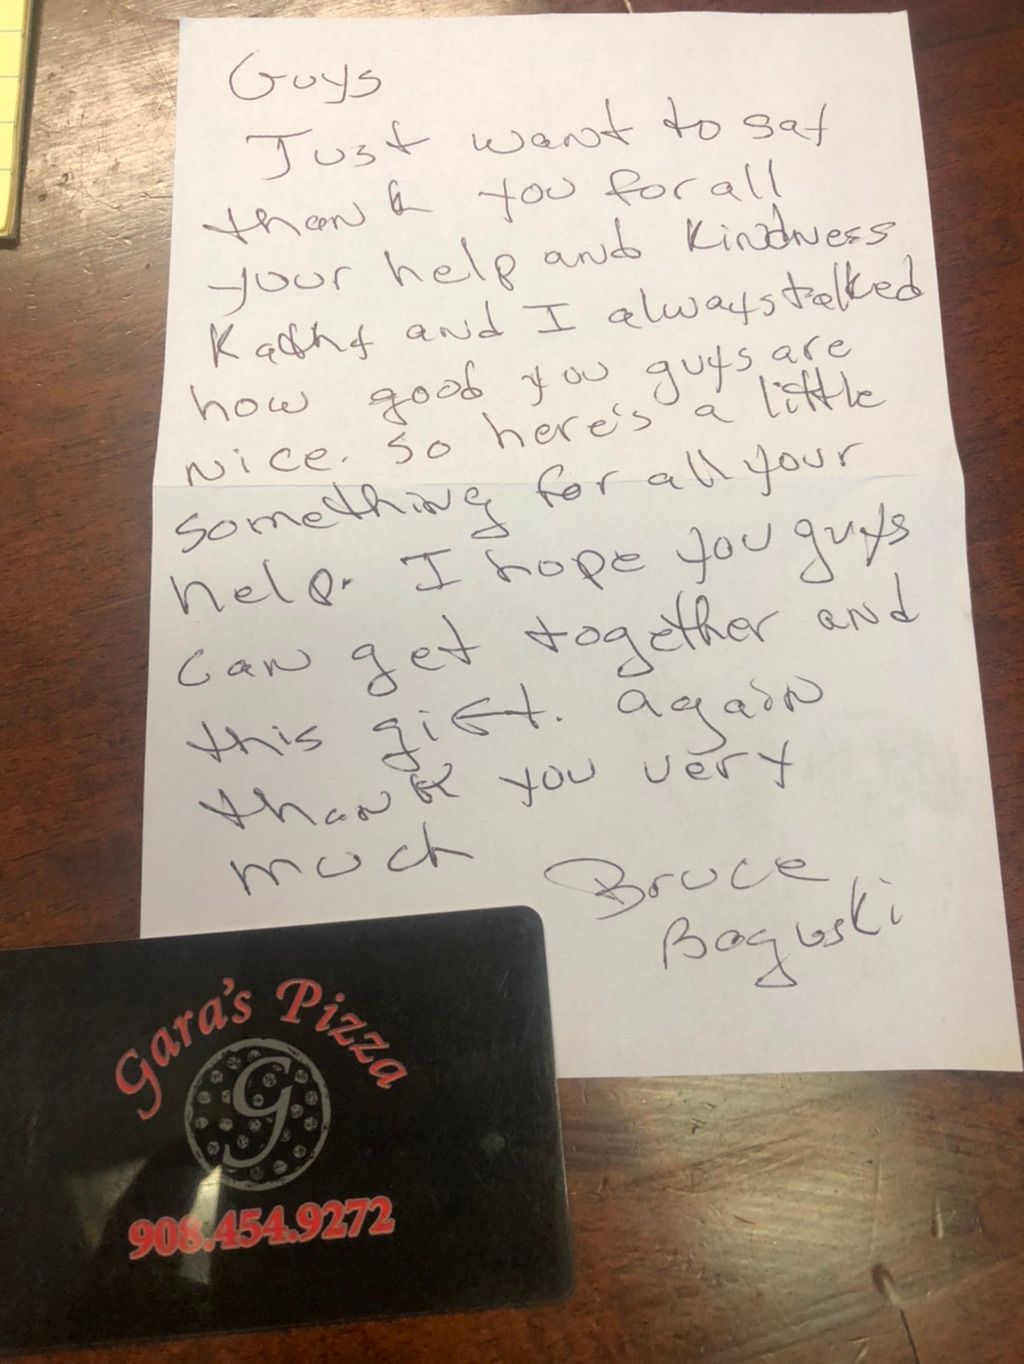 Guys
Just want to say
thank you for all
your help and kindness
Kathy and I always talked
how good you guys are
nice. So here's a little
something for all your
help. I hope you guys
can get together and
this gift. again
thank you very
much
Bruce
Boguski
Gara's Pizza
G
908.454.9272